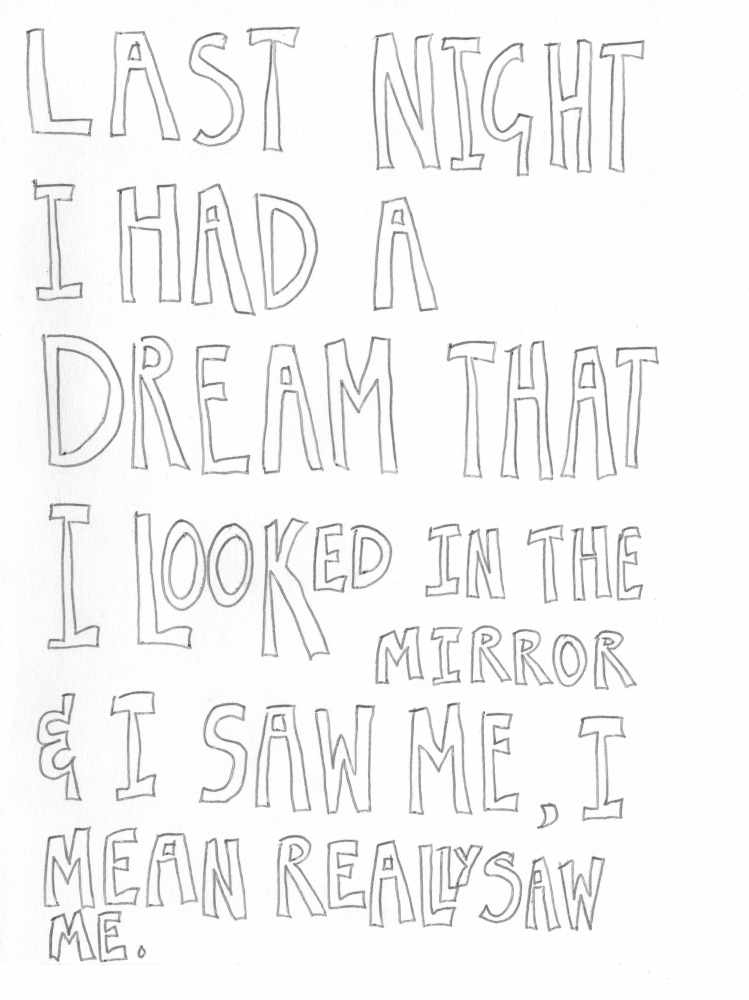 LAST NIGHT
I HAD A
DREAM THAT
I LOOKED IN THE
MIRROR
& I SAW ME, I
MEAN REALLY SAW
ME.